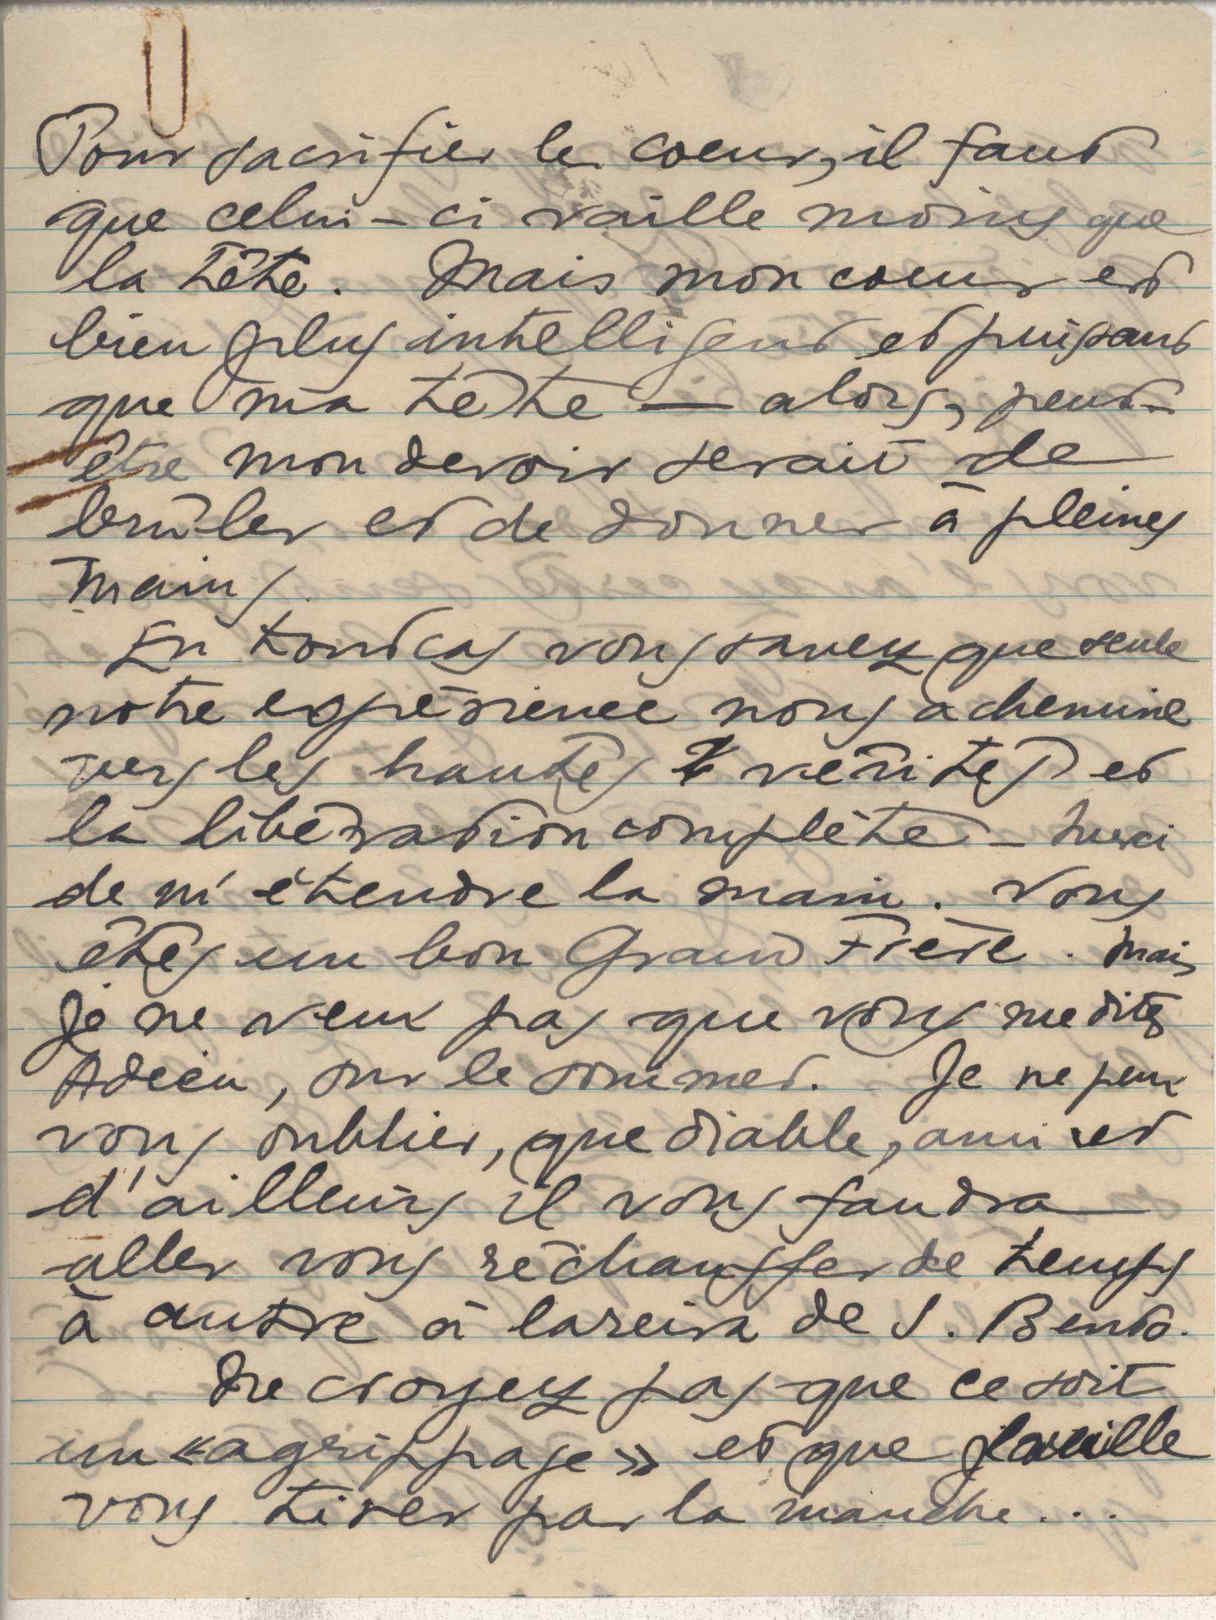 Pour sacrifier le coeur, il faut
que celui-ci vaille moins que
la tête. Mais mon coeur est
bien plus intelligent et puissant
que ma tête — alors, peut-
être mon devoir serait de
brûler et de donner à pleines
mains.
En tout cas vous savez que seule
notre expérience nous achemine
vers les hautes vérités et
la libération complète – Merci
de m'étendre la main. Vous
êtes un bon Grand Frère. Mais
je ne veux pas que vous me dites
Adieu, sur le sommet. Je ne peux
vous oublier, que diable, ami et
d'ailleurs il vous faudra
aller vous réchauffer de temps
à autre à lareira de S. Bento.
Ne croyez pas que ce soit
un «agrippage» et que je veuille
vous tirer par la manche...